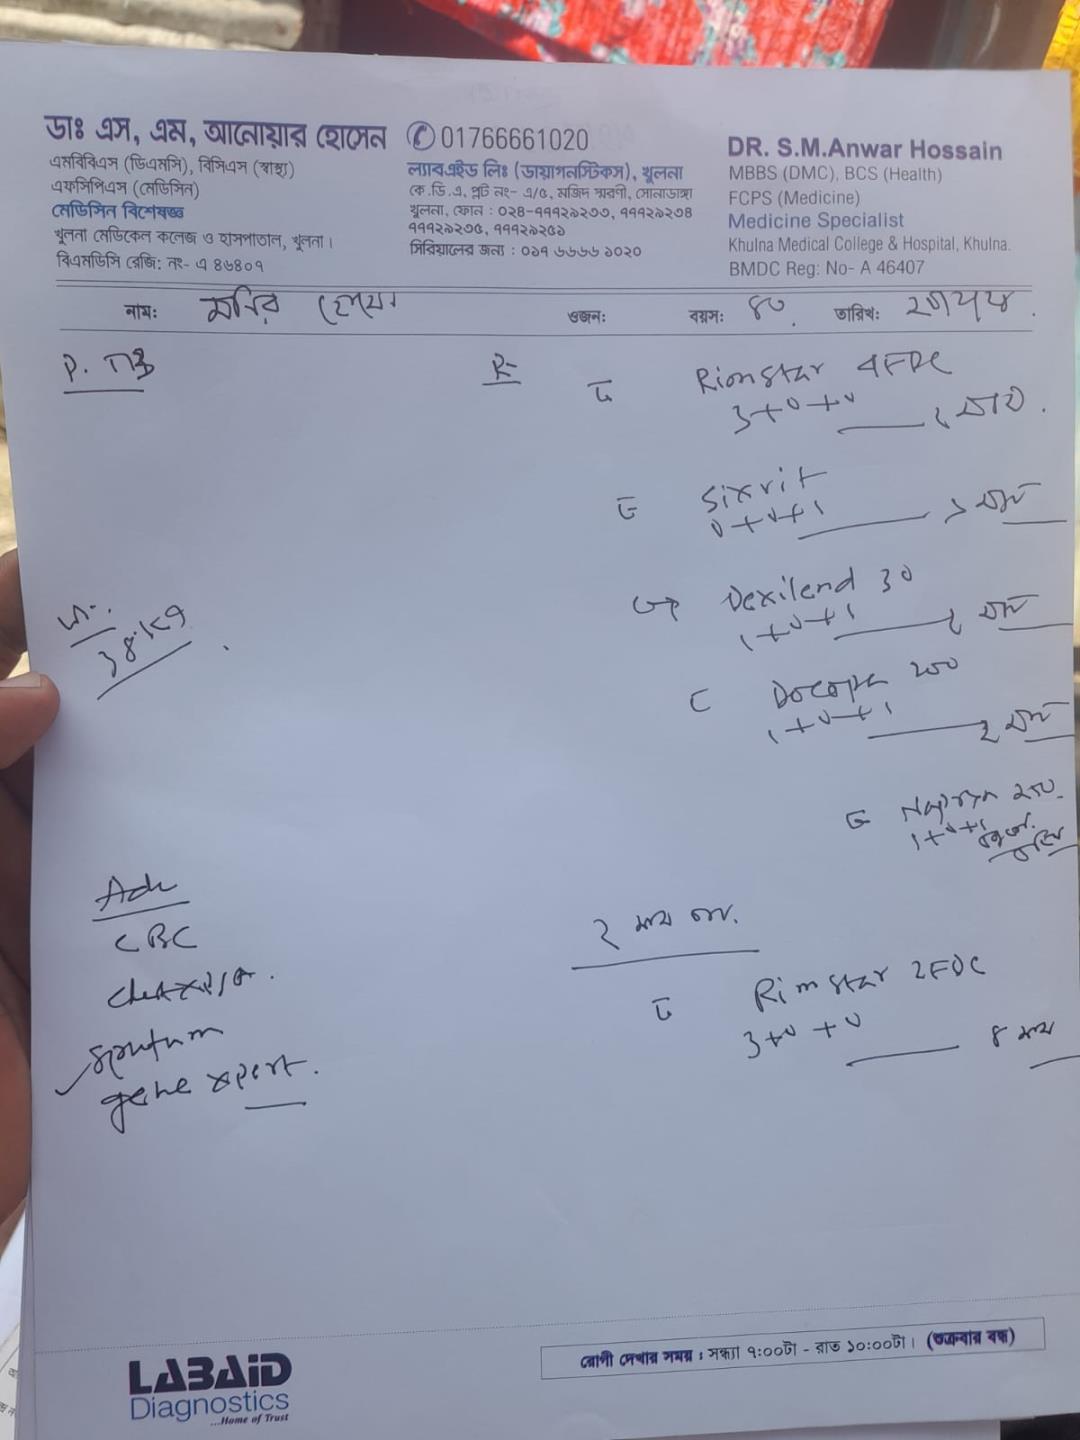 ডাঃ এস, এম, আনোয়ার হোসেন
এমবিবিএস (ডিএমসি), বিসিএস (স্বাস্থ্য)
এফসিপিএস (মেডিসিন)
মেডিসিন বিশেষজ্ঞ
খুলনা মেডিকেল কলেজ ও হাসপাতাল, খুলনা।
বিএমডিসি রেজি: নং- এ ৪৬৪০৭
01766661020
ল্যাবএইড লিঃ (ডায়াগনস্টিকস), খুলনা
কে.ডি.এ, প্লট নং- এ/৫, মজিদ স্মরণী, সোনাডাঙ্গা
খুলনা, ফোন : ০২৪-৭৭৭২৯২৩৩, ৭৭৭২৯২৩৪
৭৭৭২৯২৩৫, ৭৭৭২৯২৫১
সিরিয়ালের জন্য : ০১৭ ৬৬৬৬ ১০২০
DR. S.M.Anwar Hossain
MBBS (DMC), BCS (Health)
FCPS (Medicine)
Medicine Specialist
Khulna Medical College & Hospital, Khulna.
BMDC Reg: No- A 46407
নামঃ মনির ওজনঃ বয়সঃ ৪০ তারিখঃ
P. TB
Rimstar 4FDC
3+0+0
Sixvit
0+0+1
Dexilend 30
1+0+1
Docopa 200
1+0+1 ২
1+0+1
Adv
CBC
Sputum
gene xpert.
২ মাস
Rimstar 2FDC
3+0+0 ৪ মাস
রোগী দেখার সময় : সন্ধ্যা ৭:০০টা - রাত ১০:০০টা। (শুক্রবার বন্ধ)
LABAID
Diagnostics
...Home of Trust